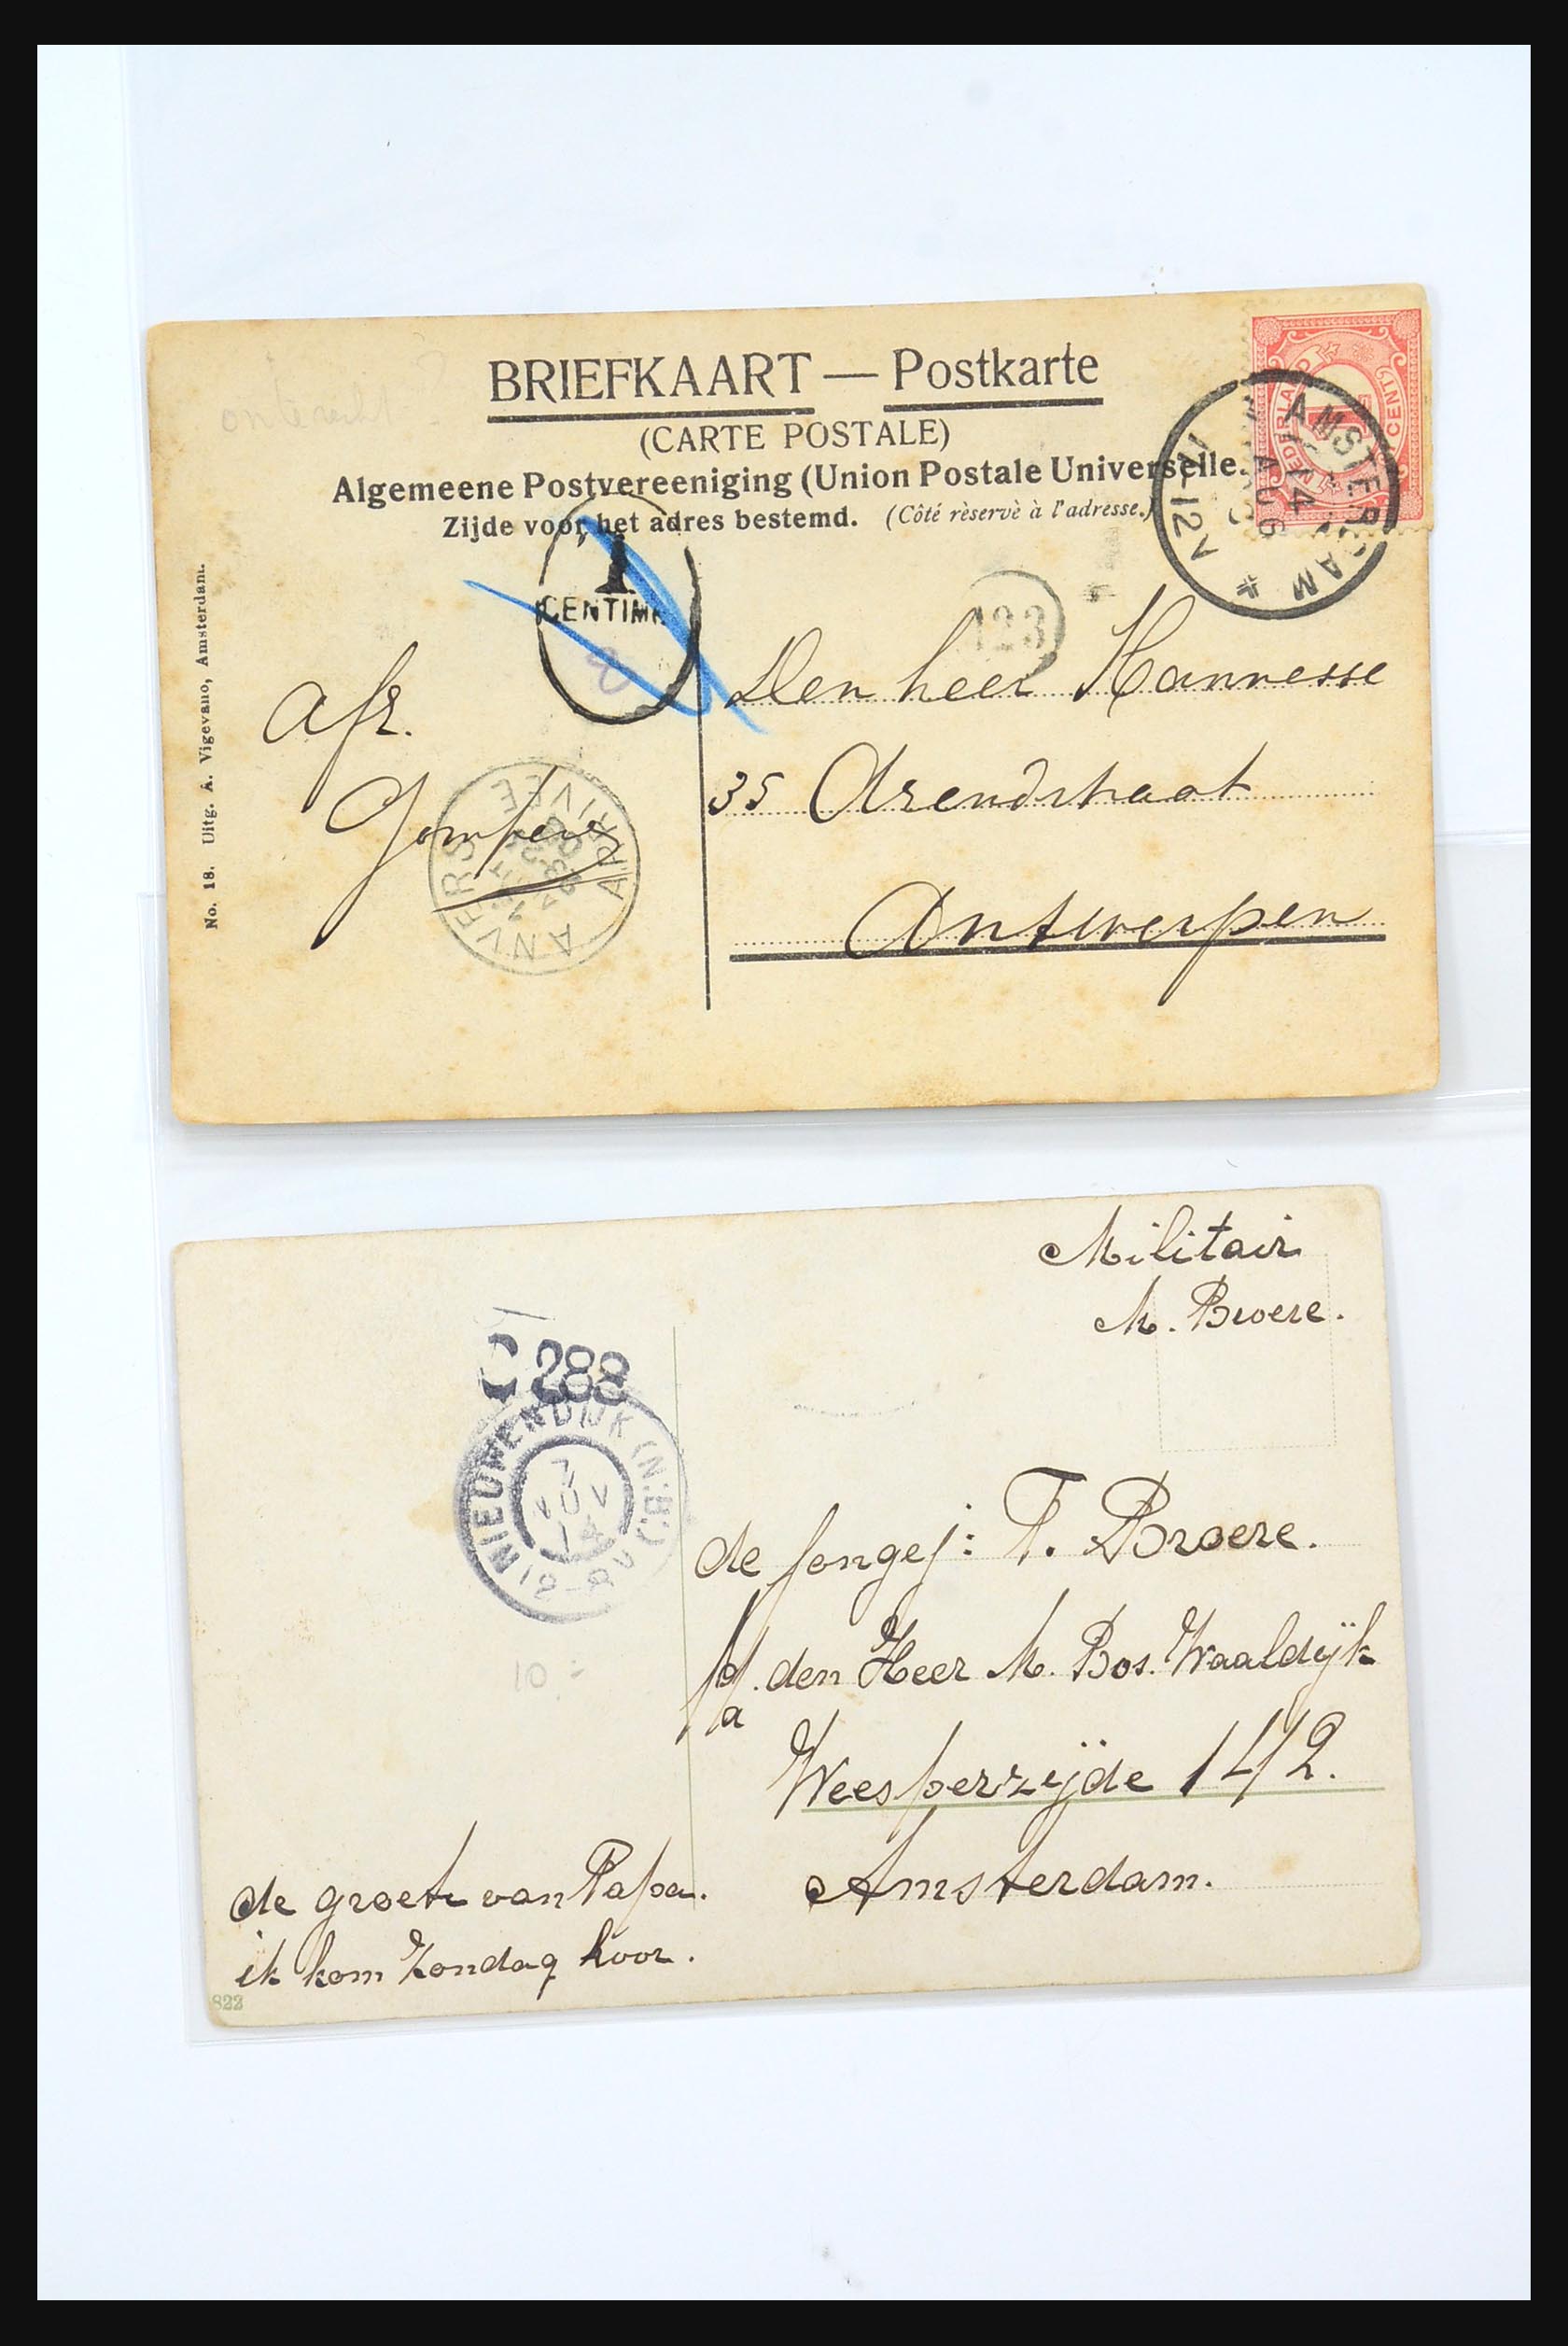 BRIEFKAART — Postkarte
(CARTE POSTALE)
Algemeene Postvereeniging (Union Postale Universelle.
Zijde voor het adres bestemd. (Côté rèservè à l'adresse.)
NEDERLAND
CENT
AMSTERDAM
14
AUG
11-12V
1
CENTIME
8
123
Den heer Hannesse
35 Arendstraat
Antwerpen
Afz.
Gompers
ANVERS
ARRIVÉE
No. 18. Uitg. A. Vigevano, Amsterdam.
Militair
M. Broere.
288
NIEUWENDIJK (N.B.)
NOV
14
12-8V
de jongej: T. Broere.
p/a. den Heer M. Bos. Waaldijk
Weesperzijde 142.
Amsterdam.
de groete van Papa.
ik kom Zondag hoor.
822
10